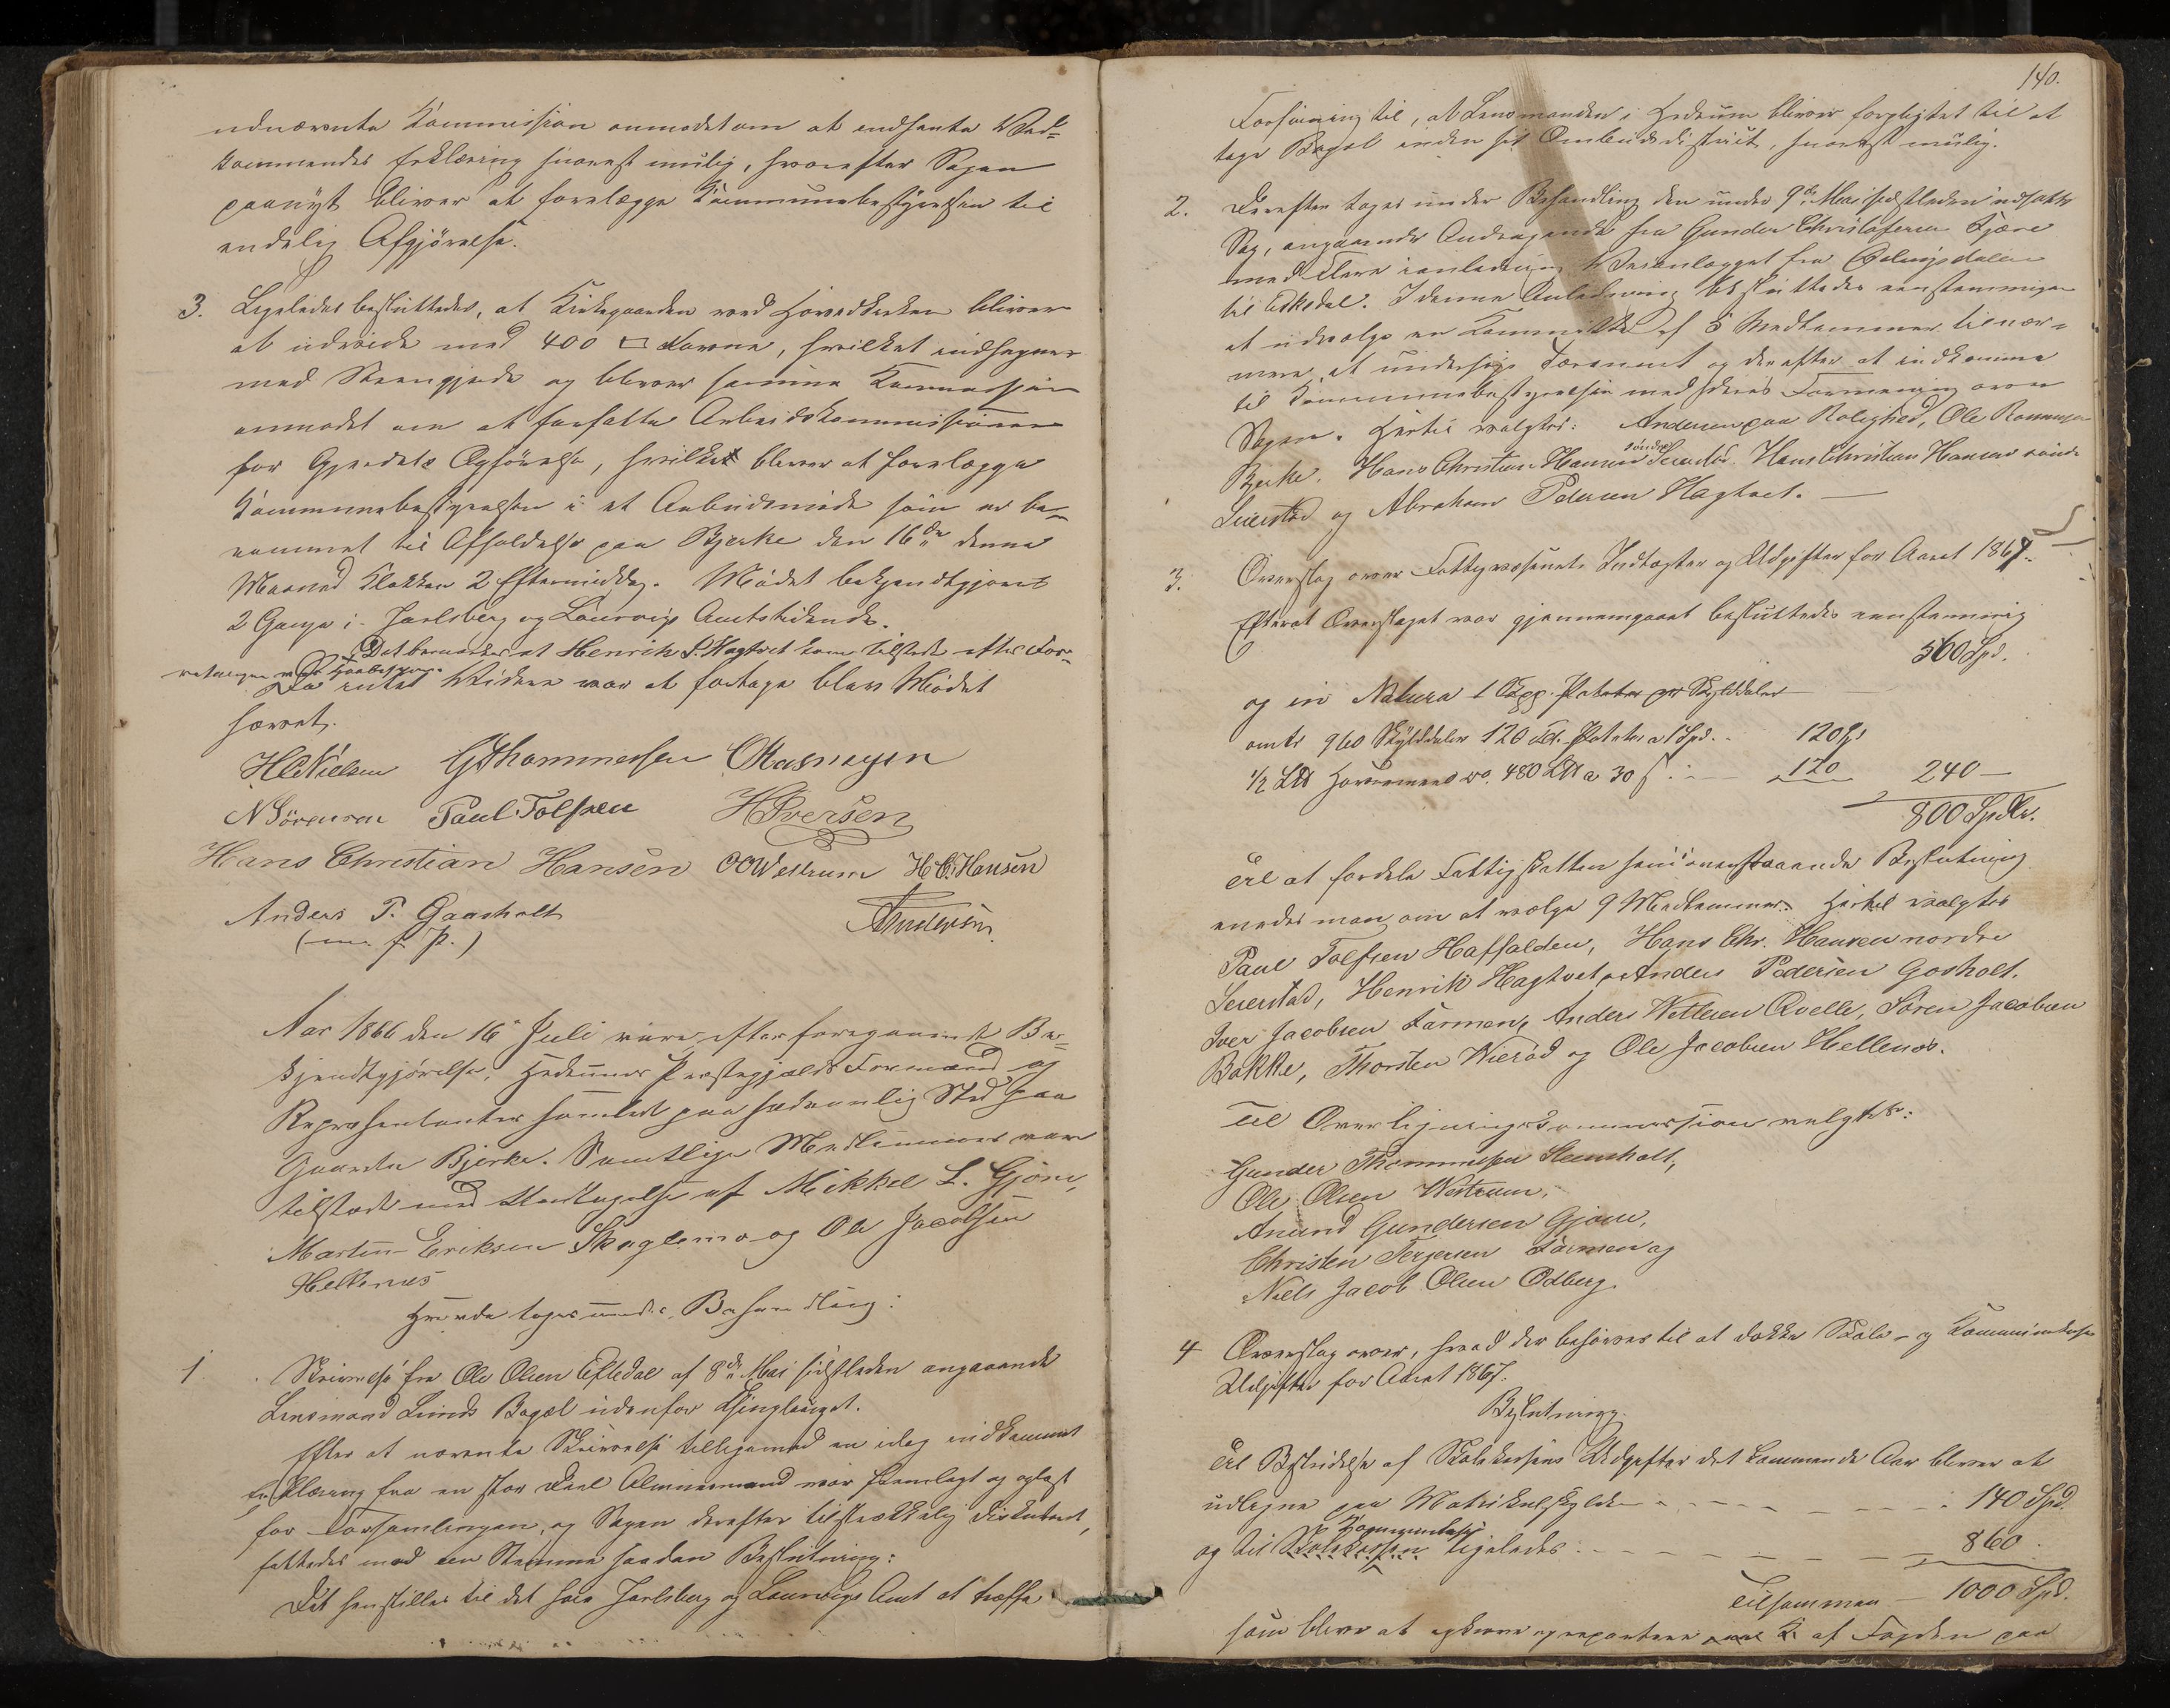 udnævnte Kommission anmodet om at indhente Ved-
kommendes Erklæring snarest mulig, hvorefter Sagen
paanyt bliver at forelægge Kommunebestyrelsen til
endelig Afgjørelse.
3. Ligeledes besluttedes, at Kirkegaarden ved Hovedkirken bliver
at udvide med 400 □ Favne, hvilket indhegnes
med Steengjerde og bliver samme Kommission
anmodet om at forfatte Arbeidskonditioner
for Gjerdets Opførelse, hvilket bliver at forelægge
Kommunebestyrelsen i et Anbudsmøde som er be-
rammet til Afholdelse paa Bjerke den 16de denne
Maaned Klokken 2 Eftermiddag. Mødet bekjendtgjøres
2 Gange i Jarlsberg og Laurvigs Amtstidende.
Det bemærkes at Henrik S. Hagtvet kom tilstede efter For-
Da intet Videre var at foretage blev Mødet
hævet.
HCNielsen GThommesen ORasmusen
N Sörensen Paul Tolfsen HIversen
Hans Christian Hansen OOWestrum H.C. Hansen
Anders P. Gaasholt Andersen
(m. f. P.)
Aar 1866 den 16 Juli vare efter foregaaende Be-
kjendtgjørelse, Hedrums Præstegjælds Formænd og
Repræsentanter samlet paa sædvanlig Sted paa
Gaarden Bjerke. Samtlige Medlemmer vare
tilstæde med Undtagelse af Mikkel L. Gjöne,
Martin Eriksen Skaglemo og Ole Jacobsen
Hellenes
Hvorda toges under Behandling:
1 Skrivelse fra Ole Olsen Eftedal af 8de Mai sidstleden angaaende
Lensmand Lunds Bopæl udenfor Thinglauget.
Efter at nævnte Skrivelse tilligemed en idag indkommet
Erklæring fra en stor Deel Almuesmænd var fremlagt og oplæst
for Forsamlingen, og Sagen derefter tilstrækkelig diskuteret,
fattedes med een Stemme saadan Beslutning:
Det henstilles til det høie Jarlsberg og Laurvigs Amt at træffe
140.
Forføining til, at Lensmanden i Hedrum bliver forpligtet til at
tage Bopæl inden sit Ombudsdistrict, snarest mulig.
2. Derefter toges under Behandling den under 9de Mai sidstleden udsatte
Sag, angaaende Andragende fra Gunder Christofersen Kjære
med Flere ianledning Veianlægget fra
til Eskedal. I denne Anledning besluttedes eenstemmigen
at udvælge en Committee af 5 Medlemmer til nær-
mere at undersøge Terrænet og derefter at indkomme
til Kommunebestyrelsen med deres Formening over
Sagen. Hertil valgtes: Andersen paa Rolighed, Ole Rasmusen
Bjerke, Hans Christian Hansen søndre Seierstad. Hans Christian Hansen nordre
Seierstad og Abraham Pedersen Hagtvet. —
3. Overslag over Fattigvæsenets Indtægter og Udgifter for Aaret 1867.
Efterat Overslaget var gjennemgaaet besluttedes eenstemmig
560 Spd.
og in Natura 1 Skpp. Poteter pr Skylddaler —
omtr 960 Skylddaler 120 Tdr. Poteter a 1 Spd. .. 120 Sp
½ L℔ Havremeel vo. 480 L℔ a 30 ſ .. — 120 240 —
800 Spdlr.
Til at fordele Fattigskatten som ovenstaaende Beslutning
enedes man om at vælge 9 Medlemmer. Hertil valgtes
Paul Tolfsen Haffalden, Hans Chr. Hansen nordre
Seierstad, Henrik Hagtvet, Anders Pedersen Gosholt.
Iver Jacobsen Farmen, Anders Wetlesen Qvelle, Sören Jacobsen
Bakke, Thorsten Wierød og Ole Jacobsen Hellenes.
Til Overligningskommission valgtes:
Gunder Thommesen Steensholt,
Ole Olsen Westrum,
Anund Gundersen Gjone,
Christen Terjesen Farmen og
Niels Jacob Olsen Odberg.
4 Overslag over, hvad der behøves til at dække Skole- og Kommunekassens
Udgifter for Aaret 1867.
Beslutning.
Til Bestridelse af Skolekassens Udgifter det kommende Aar bliver at
udligne paa Matrikulskylden — — — — 140 Spd.
og til Kommunekassen Skolekassen ligeledes — — — 860 .
Tilsammen — 1000 Spd.
som bliver at opkræve og repartere af Fogden paa